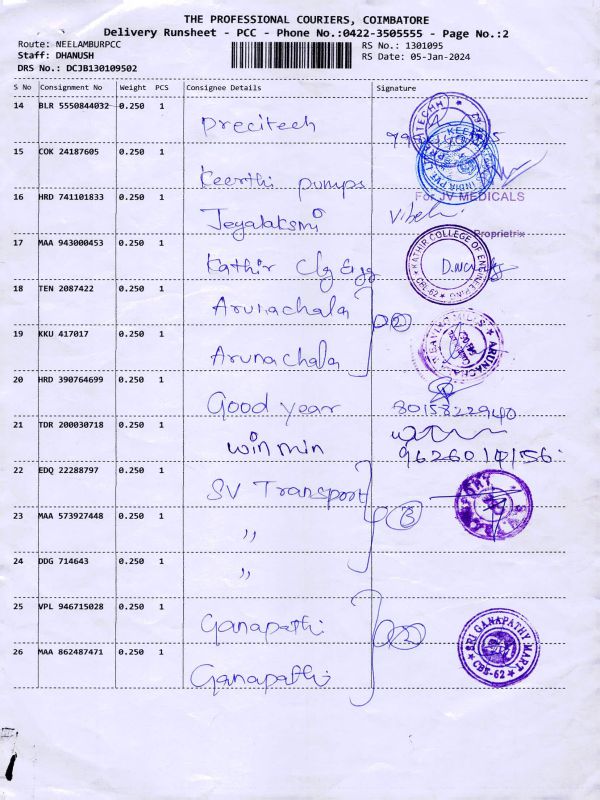 THE PROFESSIONAL COURIERS, COIMBATORE
Delivery Runsheet - PCC - Phone No.:0422-3505555 - Page No.:2
Route: NEELAMBURPCC
RS No.: 1301095
Staff: DHANUSH
RS Date: 05-Jan-2024
DRS No.: DCJB130109502
S No Consignment No Weight PCS Consignee Details Signature
14 BLR 5550844032 0.250 1 Precitech
15 COK 24187605 0.250 1 Keerthi pumps
16 HRD 741101833 0.250 1 Jeyalaksmi
For JV MEDICALS
Proprietrix
17 MAA 943000453 0.250 1 Kathir Clg Engg
KATHIR COLLEGE OF ENGINEERING
CBE-62
18 TEN 2087422 0.250 1 Arunachala
2
19 KKU 417017 0.250 1 Arunachala
20 HRD 390764699 0.250 1 Good year 8015822940
21 TDR 200030718 0.250 1 winmin
9626014156
22 EDQ 22288797 0.250 1 SV Transport
3
23 MAA 573927448 0.250 1 ,,
24 DDG 714643 0.250 1 ,,
25 VPL 946715028 0.250 1 Ganapathi
2
SRI GANAPATHY MART
CBE-62
26 MAA 862487471 0.250 1 Ganapathi